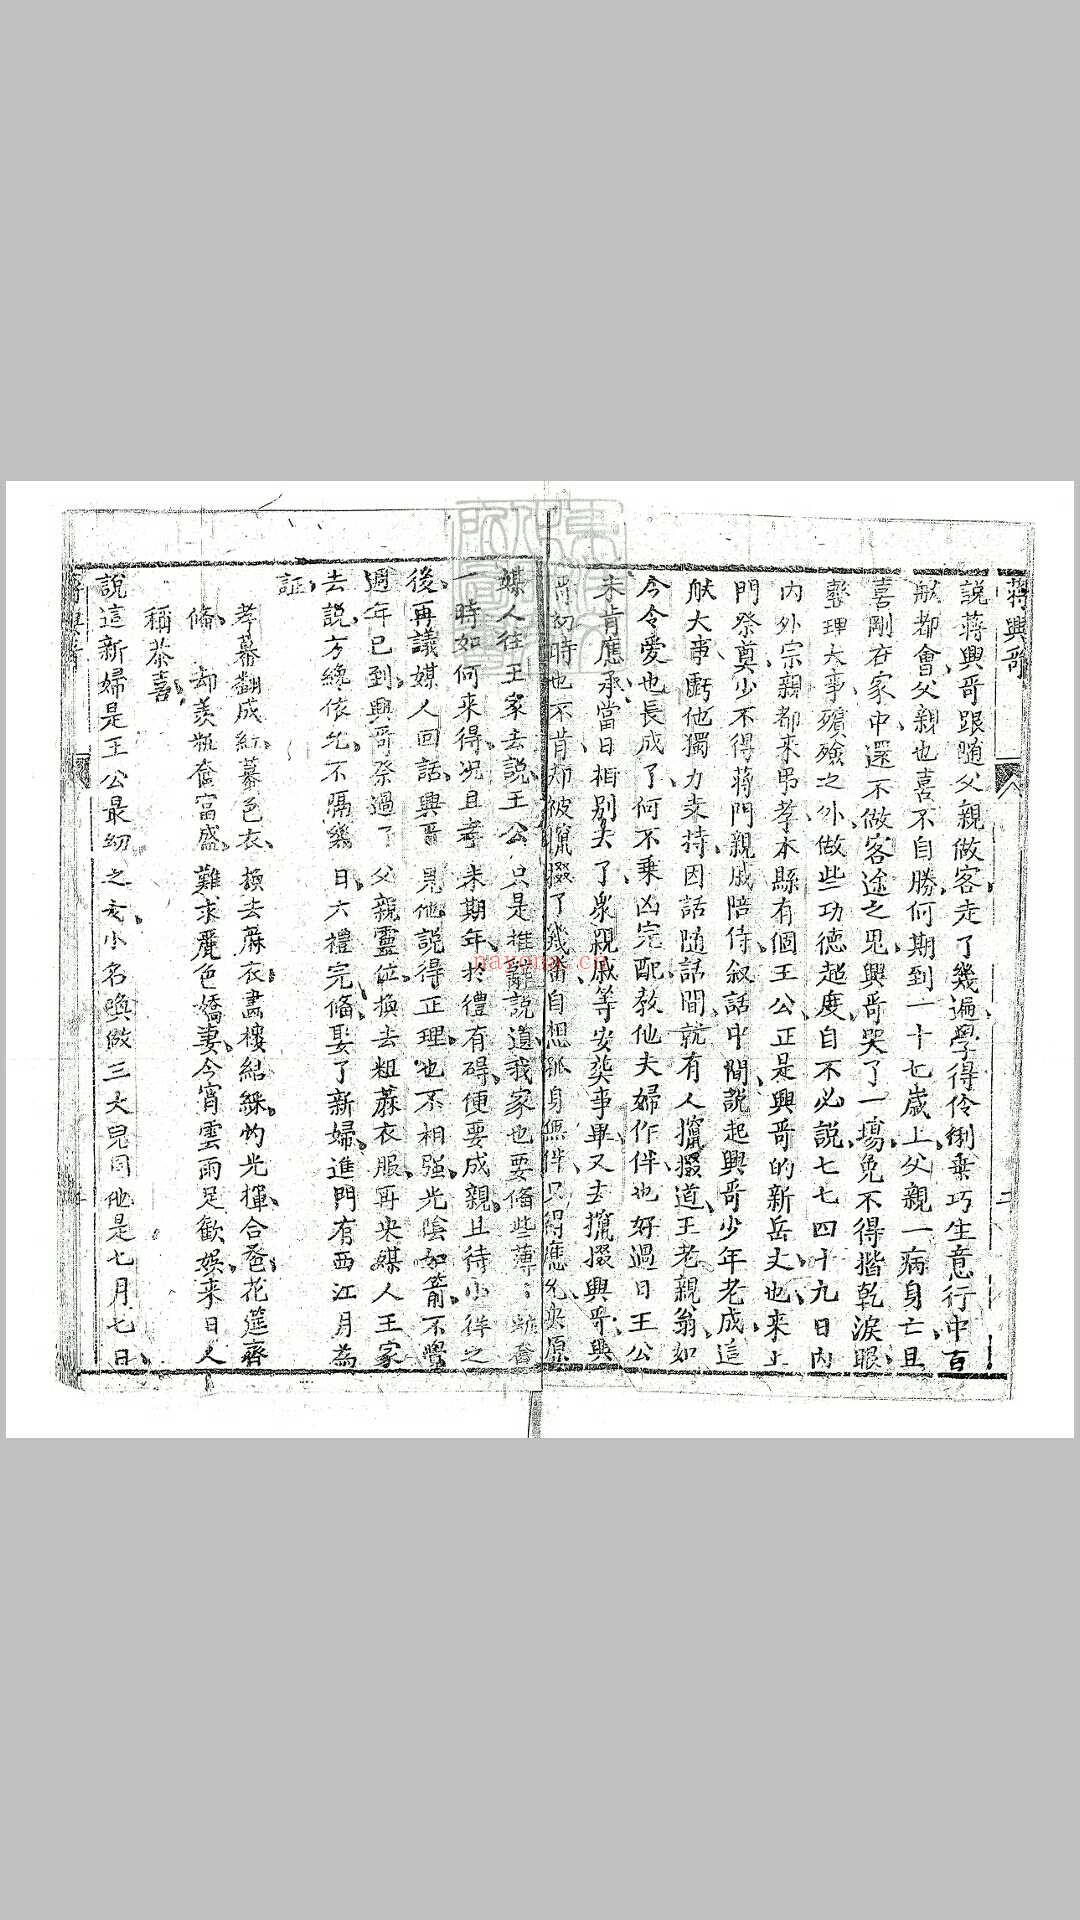 蔣興哥
二
說蔣興哥跟随父親做客走了幾遍學得伶俐乗巧生意行中百
般都會父親也喜不自勝何期到一十七歲上父親一病身亡且
喜剛在家中還不做客途之鬼興哥哭了一塲免不得揩乾淚眼
整理大事殯殮之外做些功德超度自不必說七七四十九日内
内外宗親都来吊孝本縣有個王公正是興哥的新岳丈也来上
門祭奠少不得蔣門親戚陪侍叙話中間說起興哥少年老成這
般大事虧他獨力支持因話随話間就有人攛掇道王老親翁如
今令愛也長成了何不乗凶完配教他夫婦作伴也好過日王公
未肯應承當日相别去了衆親戚等安葬事畢又去攛掇興哥興
哥初時也不肯却被攛掇了幾番自想孤身無伴只得應允央原
媒人往王家去說王公只是推辭說道我家也要俻些薄薄粧奩
一時如何来得况且孝未期年於禮有碍便要成親且待小祥之
後再議媒人回話興哥見他說得正理也不相强光陰如箭不覺
週年已到興哥祭過了父親靈位換去粗蔴衣服再央媒人王家
去說方纔依允不隔幾日六禮完俻娶了新婦進門有西江月為
証
孝幕翻成紅幕色衣換去蔴衣畫樓結綵灼光揮合卺花筵齊
俻却羡粧奩富盛難求麗色嬌妻今宵雲雨足歡娱来日人
稱恭喜
說這新婦是王公最幼之女小名喚做三大兒因他是七月七日
nayona.cn